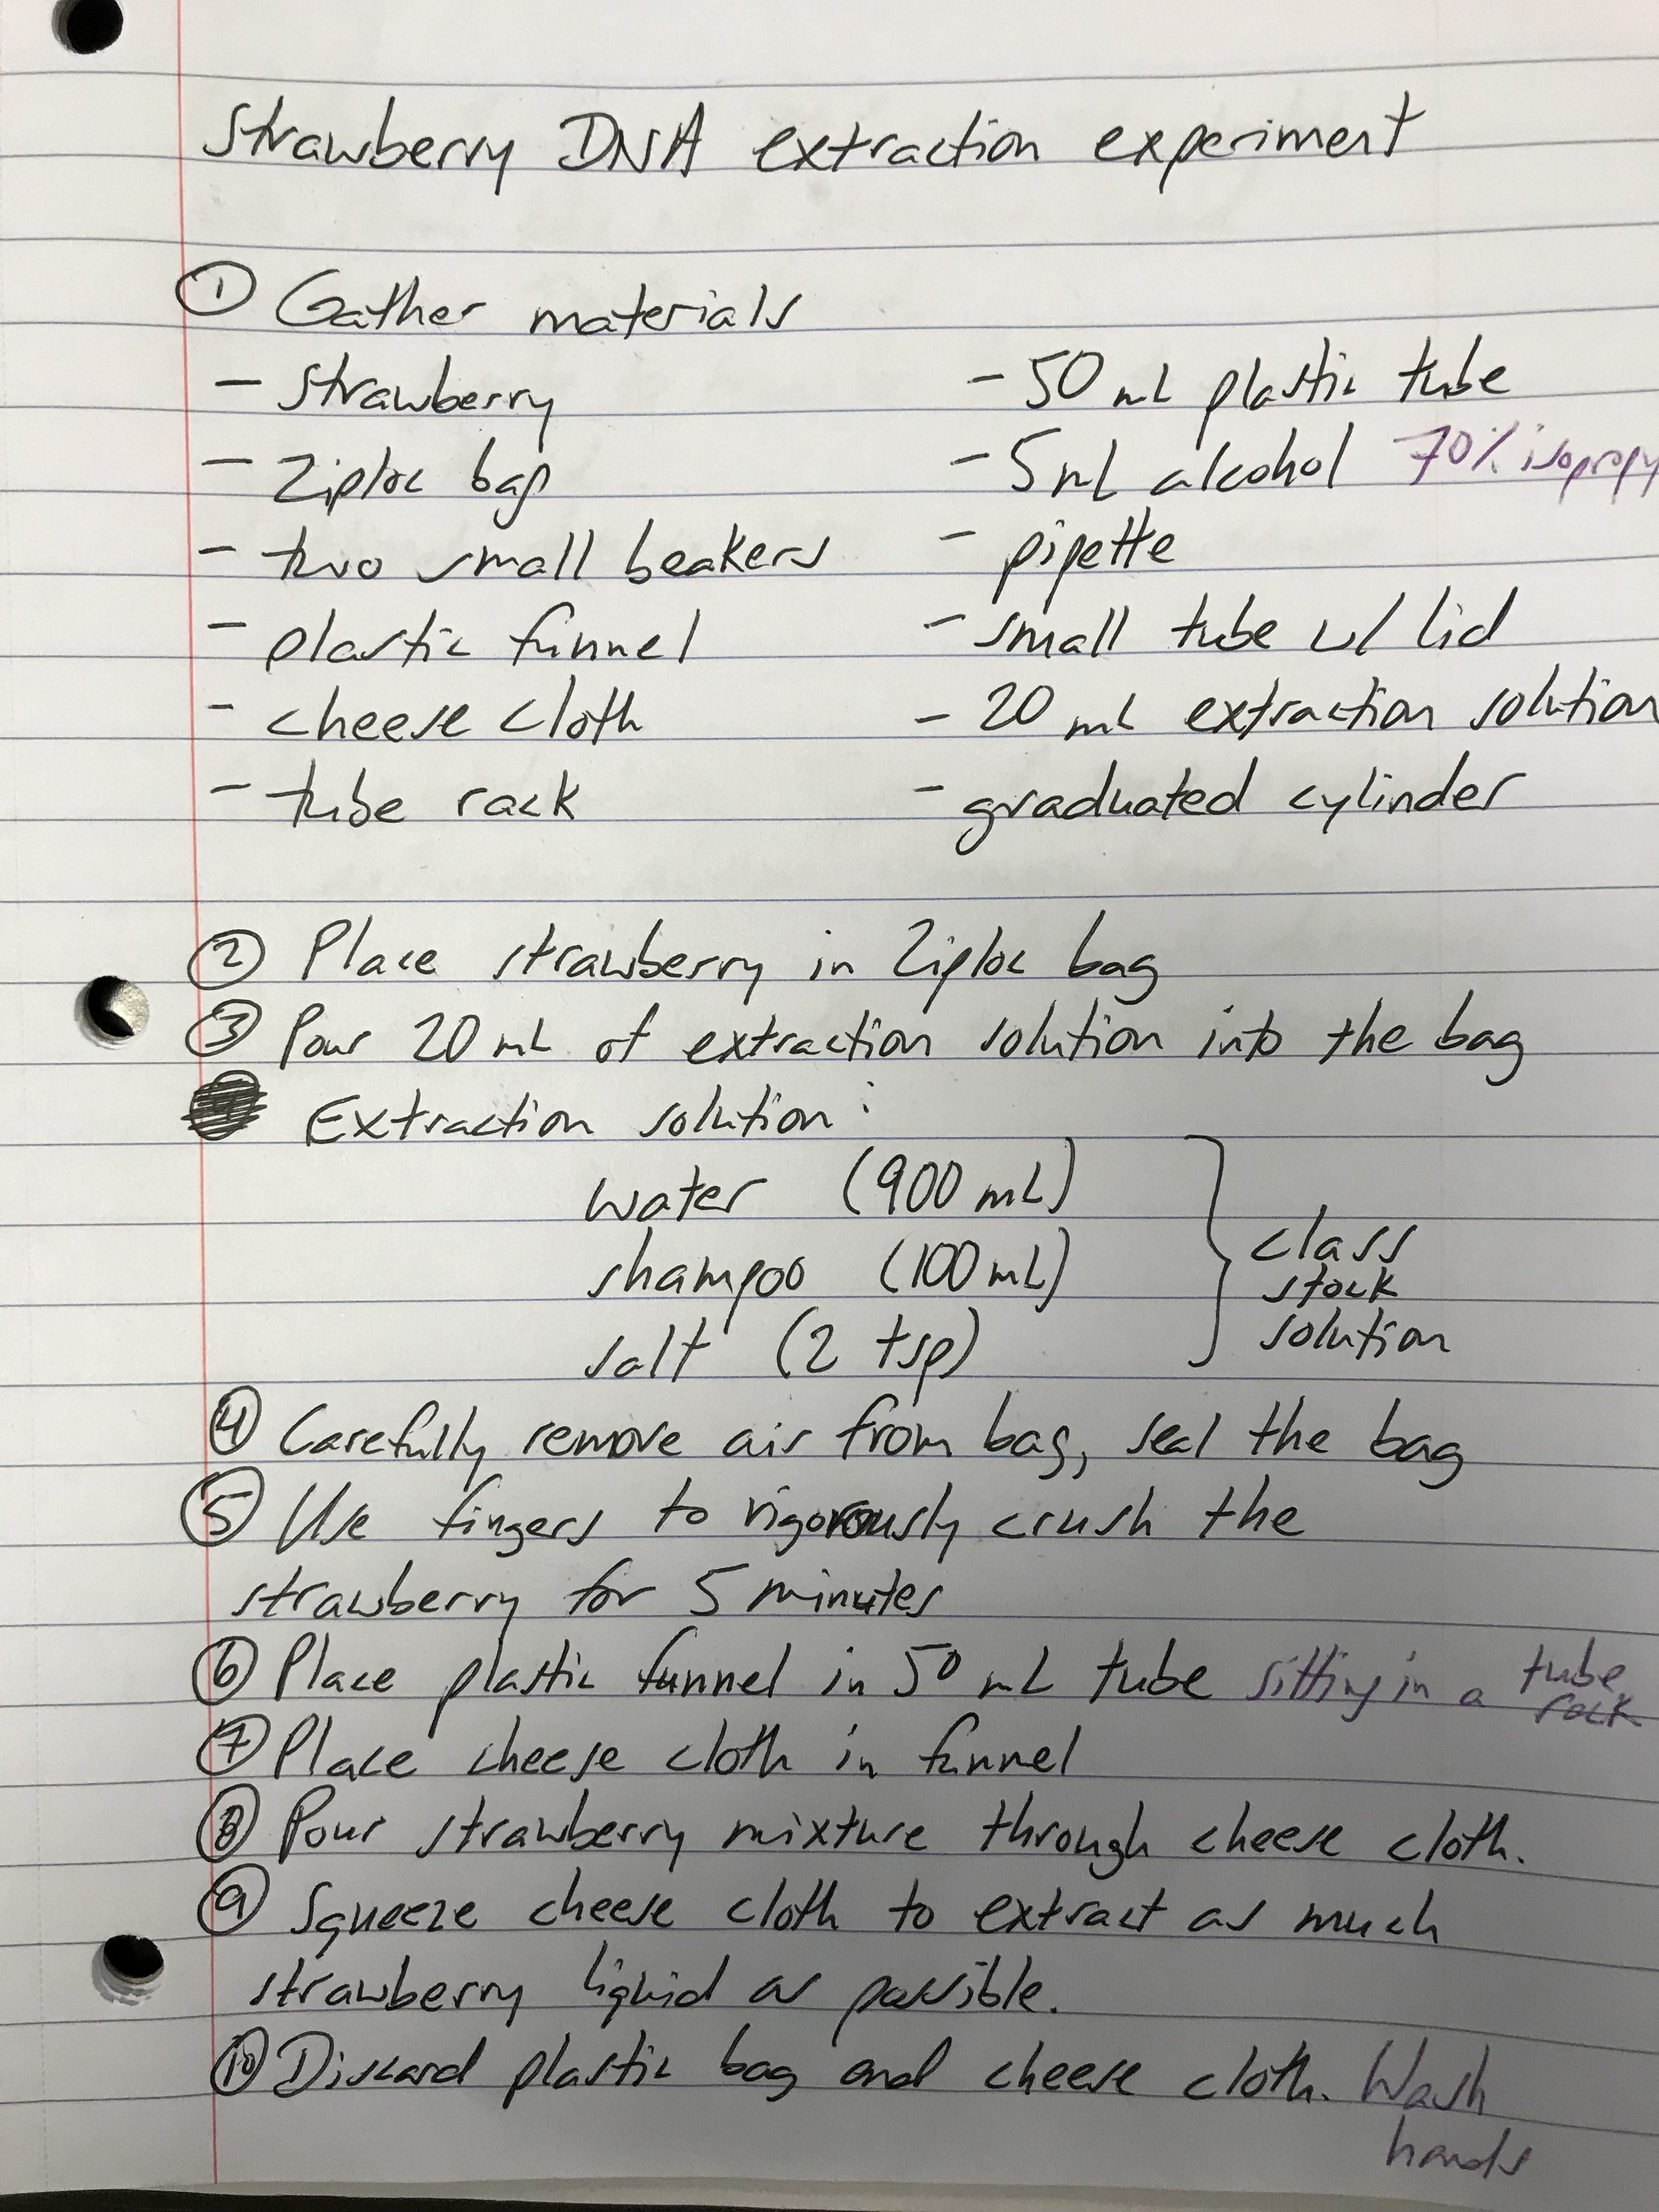 Strawberry DNA extraction experiment
① Gather materials
- strawberry
- Ziploc bag
- two small beakers
- plastic funnel
- cheese cloth
- tube rack
- 50 mL plastic tube
- 5 mL alcohol 70% isopropy
- pipette
- small tube w/ lid
- 20 mL extraction solution
- graduated cylinder
② Place strawberry in Ziploc bag
③ Pour 20 mL of extraction solution into the bag
Extraction solution:
water (900 mL)
shampoo (100 mL)
salt (2 tsp)
class
stock
solution
④ Carefully remove air from bag, seal the bag
⑤ Use fingers to rigorously crush the
strawberry for 5 minutes
⑥ Place plastic funnel in 50 mL tube sitting in a tube
rack
⑦ Place cheese cloth in funnel
⑧ Pour strawberry mixture through cheese cloth.
⑨ Squeeze cheese cloth to extract as much
strawberry liquid as possible.
⑩ Discard plastic bag and cheese cloth. Wash
hands